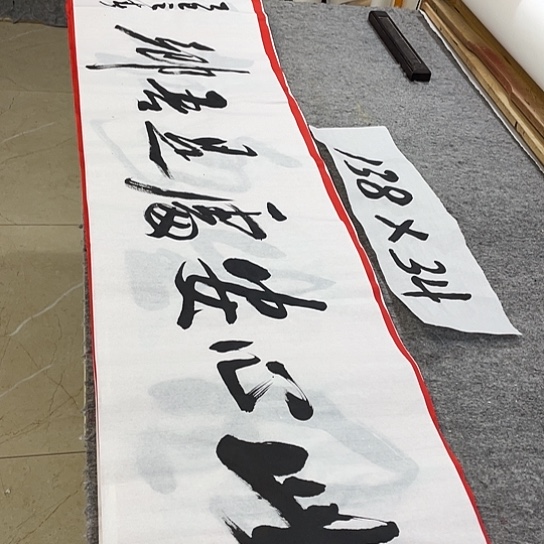 此心安處是吾鄉
138×34